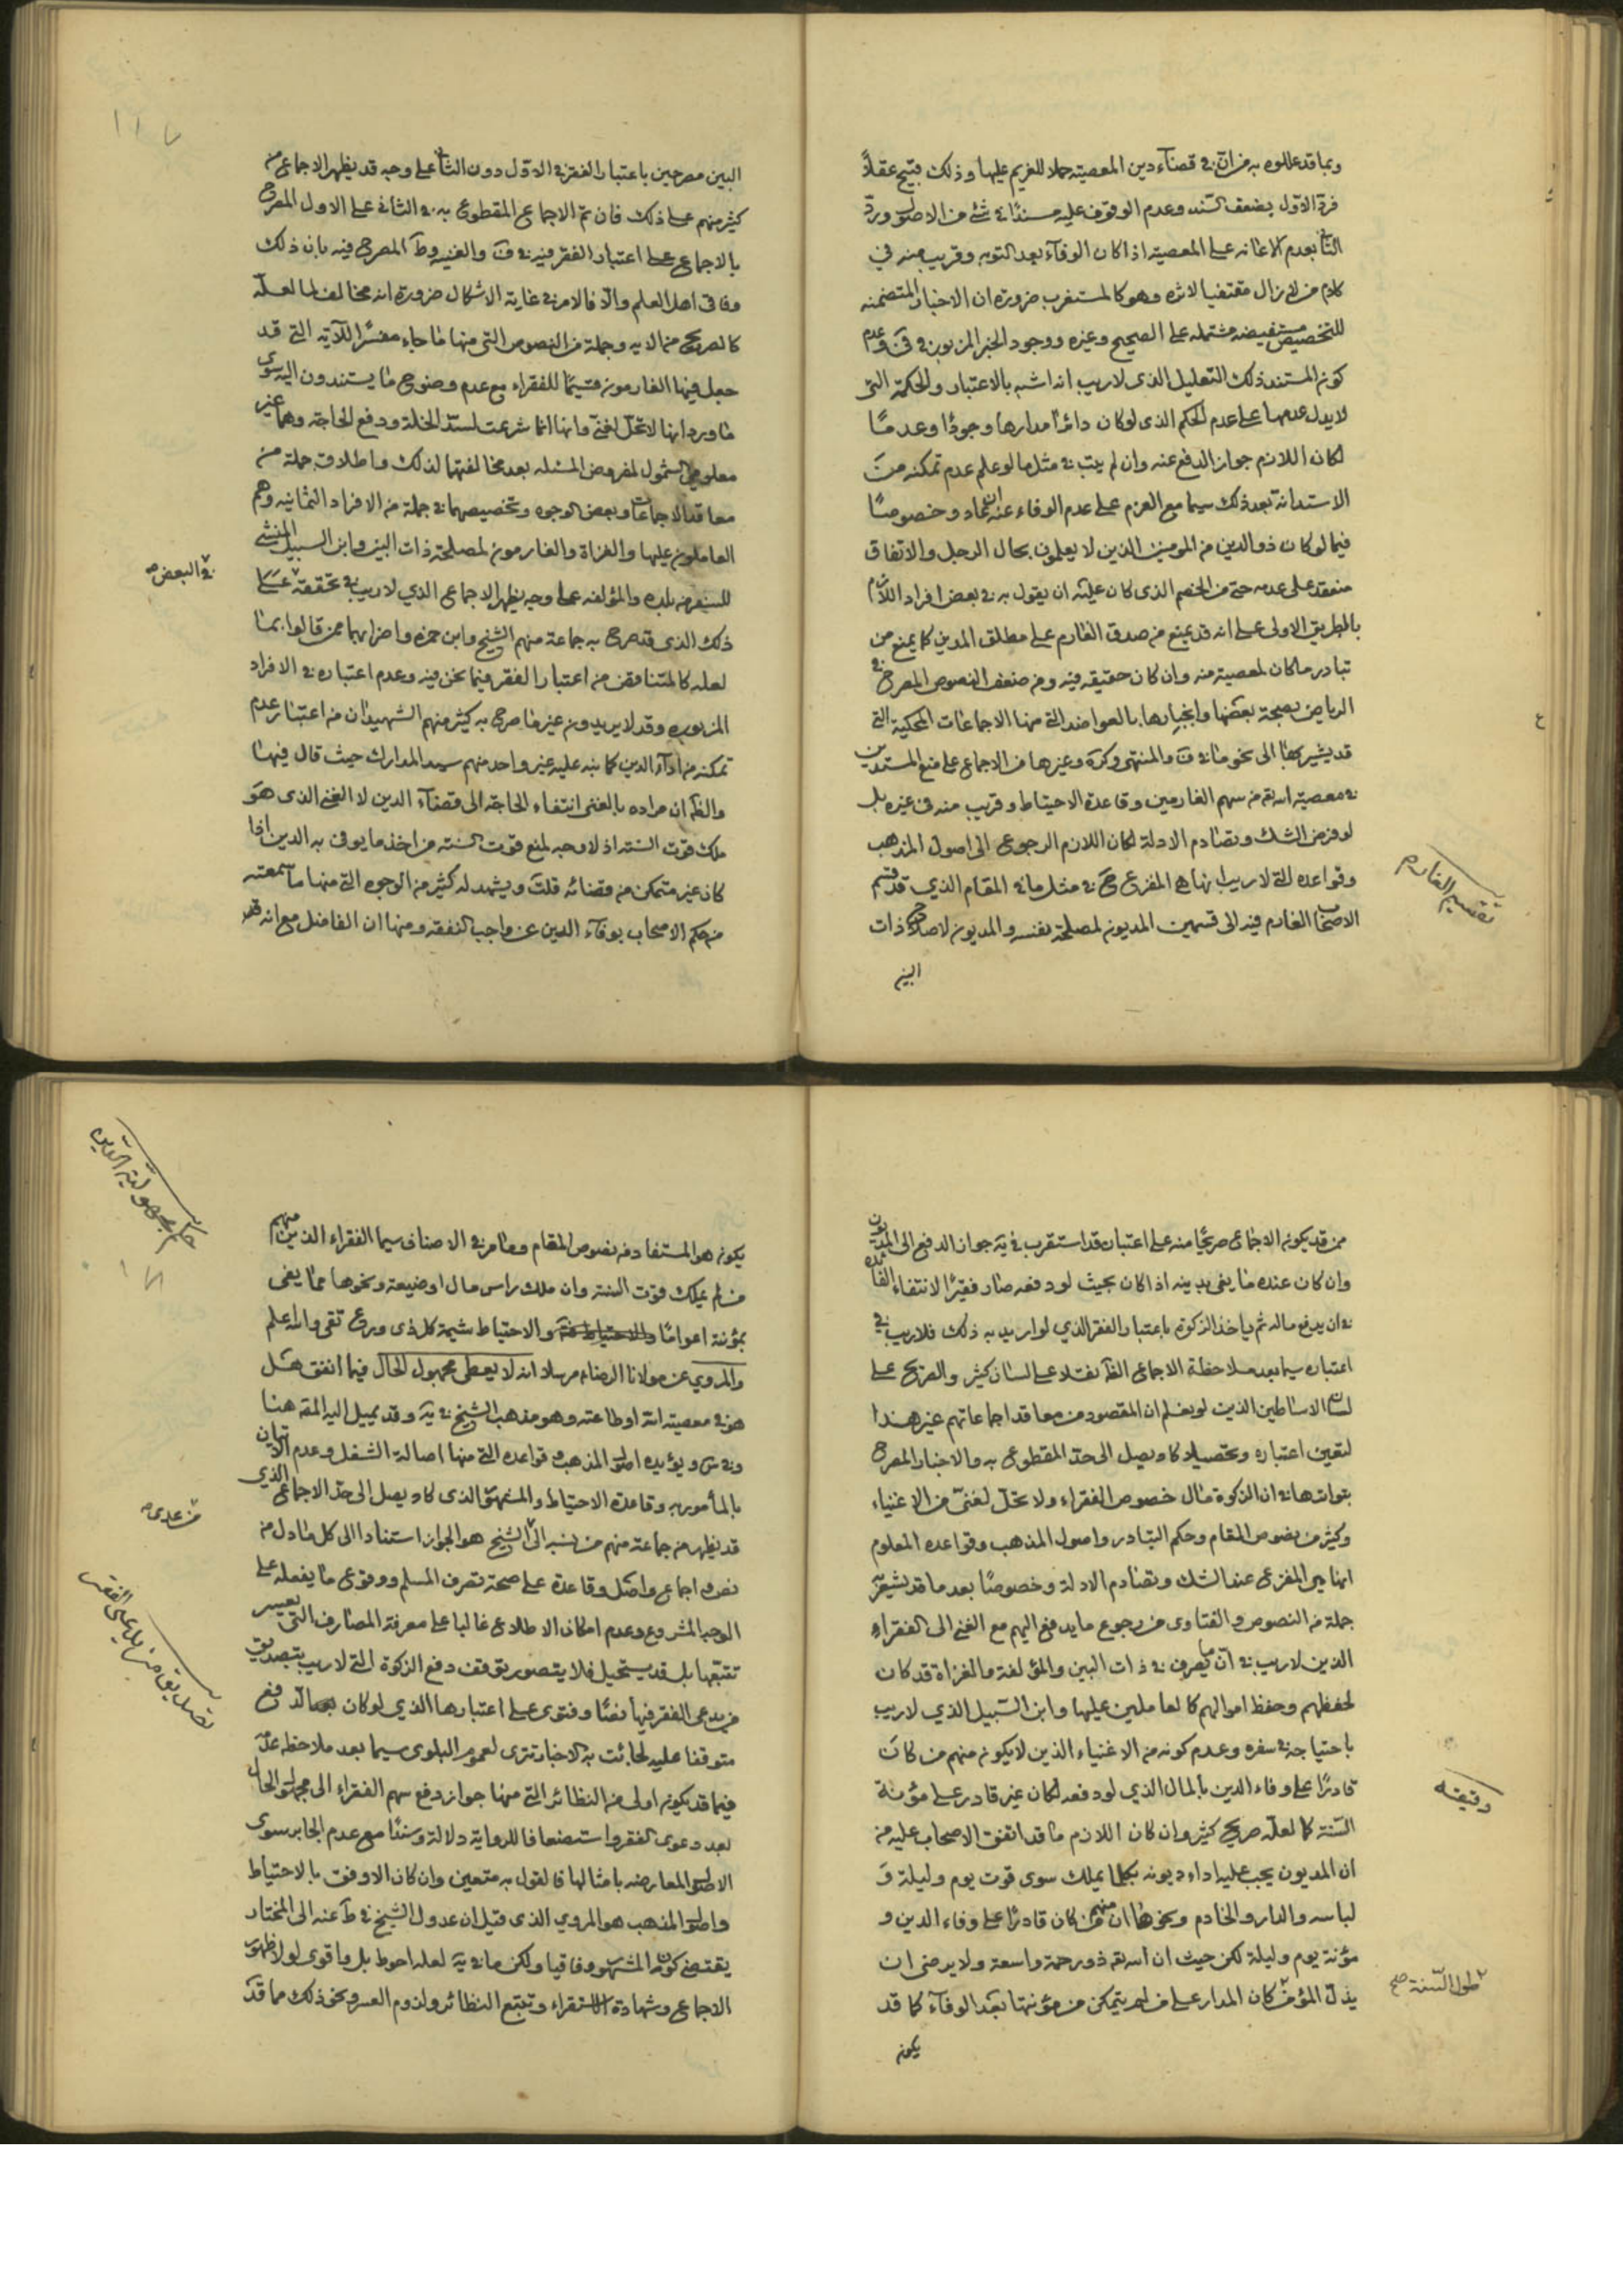 وبما قد عللوه به من ان في قضاء دين المعصية حملا للغريم عليها وذلك قبيح عقلاً
فرد الاول بضعف السند وعدم الوقوف عليه مسندًا في شئ من الاصول ورد
الثاني بعدم الاعانه على المعصية اذا كان الوفاء بعد التوبه وقريب منه في
كلام من لا نزال مقتفيا لاثره وهو كالمستغرب ضرورة ان الاخبار المتضمنه
للتخصيص مستفيضه مشتمله على الصحيح وغيره ووجود الخبر المزبور في ف وعدم
كونه المستند ذلك التعليل الذى لا ريب انه اشبه بالاعتبار والحكمة التى
لا يدل عدمها على عدم الحكم الذى لو كان دائرا مدارها وجودًا وعدمًا
لكان اللازم جواز الدفع عنه وان لم يتب في مثل ما لو علم عدم تمكنه من
الاستدانة بعد ذلك سيما مع العزم على عدم الوفاء عنه ان عاد وخصوصًا
فيما لو كان ذو الدين من المومنين الذين لا يعلمون بحال الرجل والاتفاق
منعقد على عدمه حتى من الخصم الذى كان عليه ان يقول به في بعض افراد اللازم
بالطريق الاولى على انه قد يمنع من صدق الغارم على مطلق المدين كما يمنع من
تبادر ما كان لمعصية منه وان كان حقيقه فيه ومن ضعف النصوص المصرح في
الرياض بصحة بعضها وانجبارها بالعواضد التى منها الاجماعات المحكية التى
قد يشير بها الى نحو ما في ف والمنتهى وكره وغيرها من الاجماع على منع المستدين
في معصية الله من سهم الغارمين وقاعدة الاحتياط وقريب منه في غيره بل
لو فرض الشك وتصادم الادلة لكان اللازم الرجوع الى اصول المذهب
وقواعده التى لا ريب انها هى المفزع في مثل ما في المقام الذي قد قسم
الاصحاب الغارم فيه الى قسمين المديون لمصلحة نفسه والمديون لاصلاح ذات
البين
تقسيم الغارم
البين مصرحين باعتبار الفقر في الاول دون الثاني على وجه قد يظهر الاجماع من
كثير منهم على ذلك فان تم الاجماع المقطوع به في الثانى على الاول المصرح
بالاجماع على اعتبار الفقر فيه في ف والغنيه وط المصرح فيه بان ذلك
وفاق اهل العلم والا فالامر في غاية الاشكال ضرورة انه مخالف لما لعله
كالصريح من الايه وجملة من النصوص التى منها ما جاء مفسرًا للآيه التى قد
جعل فيها الغارمون قسيمًا للفقراء مع عدم وضوح ما يستندون اليه سوى
ما ورد انها لا تحل لغنى وانها انما شرعت لسد الخلة ودفع الحاجة وهما غير
معلومى الشمول لمفروض المسئله بعد مخالفتها لذلك واطلاق جملة من
معاقد الاجماعات وبعض الوجوه وتخصيصهما في جملة من الافراد الثمانيه وهم
العاملون عليها والغزاة والغارمون لمصلحة ذات البين وابن السبيل المنشئ
للسفر من بلده والمؤلفه على وجه يظهر الاجماع الذي لا ريب في تحققه في البعض على
ذلك الذى قد صرح به جماعة منهم الشيخ وابن حمزه واضرابهما ممن قالوا بما
لعله كالمتناقض من اعتبار الفقر فيما نحن فيه وعدم اعتباره في الافراد
المزبوره وقد لا يريدون غير ما صرح به كثير منهم الشهيدان من اعتبار عدم
تمكنه من اداء الدين كما نبه عليه غير واحد منهم سيد المدارك حيث قال فيها
والظ ان مراده بالغنى انتفاء الحاجة الى قضاء الدين لا الغنى الذى هو
ملك قوت السنة اذ لا وجه لمنع قوت السنه من اخذ ما يوفى به الدين اذا
كان غير متمكن من قضائه قلت ويشهد له كثير من الوجوه التى منها ما سمعته
من حكم الاصحاب بوفاء الدين عن واجب النفقه ومنها ان الفاضل مع انه
في البعض
ممن قد يكون الاجماع صريحًا منه على اعتباره قد استقرب في يه جواز الدفع الى المديون
وان كان عنده ما يفى بدينه اذا كان بحيث لو دفعه صار فقيرًا لانتفاء الفائدة
في ان يدفع ماله ثم ياخذ الزكوة باعتبار الفقر الذي لو اريد به ذلك فلا ريب في
اعتباره سيما بعد ملاحظة الاجماع الظ نقلا على لسان كثير والصريح على
لسان الاساطين الذين لو يعلم ان المقصود من معاقد اجماعاتهم غير هذا
لتعين اعتباره وتحصيلا كاد يصل الى حد المقطوع به والاخبار المصرح
بتواترها في ان الزكوة مال خصوص الفقراء ولا تحل لغنى من الاغنياء
وكثير من نصوص المقام وحكم التبادر واصول المذهب وقواعده المعلوم
انها هى المفزع عند الشك وتصادم الادلة وخصوصًا بعد ما قد يشعر به
جملة من النصوص والفتاوى من رجوع ما يدفع اليهم مع الغنى الى الفقراء
الذين لا ريب في ان ما يصرف في ذات البين والمؤلفة والغزاة قد كان
لحفظهم وحفظ اموالهم كالعاملين عليها وابن السبيل الذي لا ريب
باحتياجه في سفره وعدم كونه من الاغنياء الذين لا يكون منهم من كان
قادرًا على وفاء الدين بالمال الذي لو دفعه لكان غير قادر على مؤنة
السنة كما لعله صريح كثير وان كان اللازم ما قد اتفق الاصحاب عليه من
ان المديون يجب عليه اداء ديونه بكلما يملك سوى قوت يوم وليلة و
لباسه والدار والخادم ونحوها ان منهم من كان قادرًا على وفاء الدين و
مؤنة يوم وليلة لكن حيث ان الله تع ذو رحمة واسعة ولا يرضى ان
يذل المؤمن كان المدار على من لم يتمكن من مؤنتها بعد الوفاء كما قد
يكون
دقيقه
طول السنة صح
يكون هو المستفاد من نصوص المقام ومما مر في الاصناف سيما الفقراء الذين منهم
من لم يملك قوت السنة وان ملك راس مال او ضيعة ونحوها مما يفى
بمؤنة اعوامًا والاحتياط شيمة كل ذى ورع تقى والله اعلم
والمروي عن مولانا الرضاء مرسلا انه لا يعطى مجهول الحال فيما انفق هل
هو في معصية الله او طاعته وهو مذهب الشيخ في يه وقد يميل اليه المقه هنا
وفى س ويؤيده اصول المذهب وقواعده التى منها اصالة الشغل وعدم الاتيان
بالمأمور به وقاعدة الاحتياط والمشهور الذى كاد يصل الى حد الاجماع الذي
قد يظهر من جماعة منهم من نسبه الى من عدى الشيخ هو الجواز استنادا الى كل ما دل من
نص واجماع واصل وقاعدة على صحة تصرف المسلم ووقوع ما يفعله على
الوجه المشروع وعدم امكان الاطلاع غالبا على معرفة المصارف التى يعسر
تتبعها بل قد يستحيل فلا يتصور توقف دفع الزكوة التى لا ريب بتصديق
من يدعى الفقر فيها نصًا وفتوى على اعتبارها الذي لو كان الدفع
متوقفا عليه لجائت به الاخبار تترى لعموم البلوى سيما بعد ملاحظة عد
فيما قد يكون اولى من النظائر التى منها جواز دفع سهم الفقراء الى مجهول الحال
بعد دعوى الفقر واستضعافا للرواية دلالة وسندًا مع عدم الجابر سوى
الاصول المعارضه بامثالها فالقول به متعين وان كان الاوفق بالاحتياط
واصول المذهب هو المروي الذى قيل ان عدول الشيخ في ط عنه الى المختار
يقتضى كون المشهور وفاقيا ولكن ما في يه لعله احوط بل واقوى لولا ظهور
الاجماع وشهادة الاستقراء وتتبع النظائر ولزوم العسر ونحو ذلك مما قد
من عدى